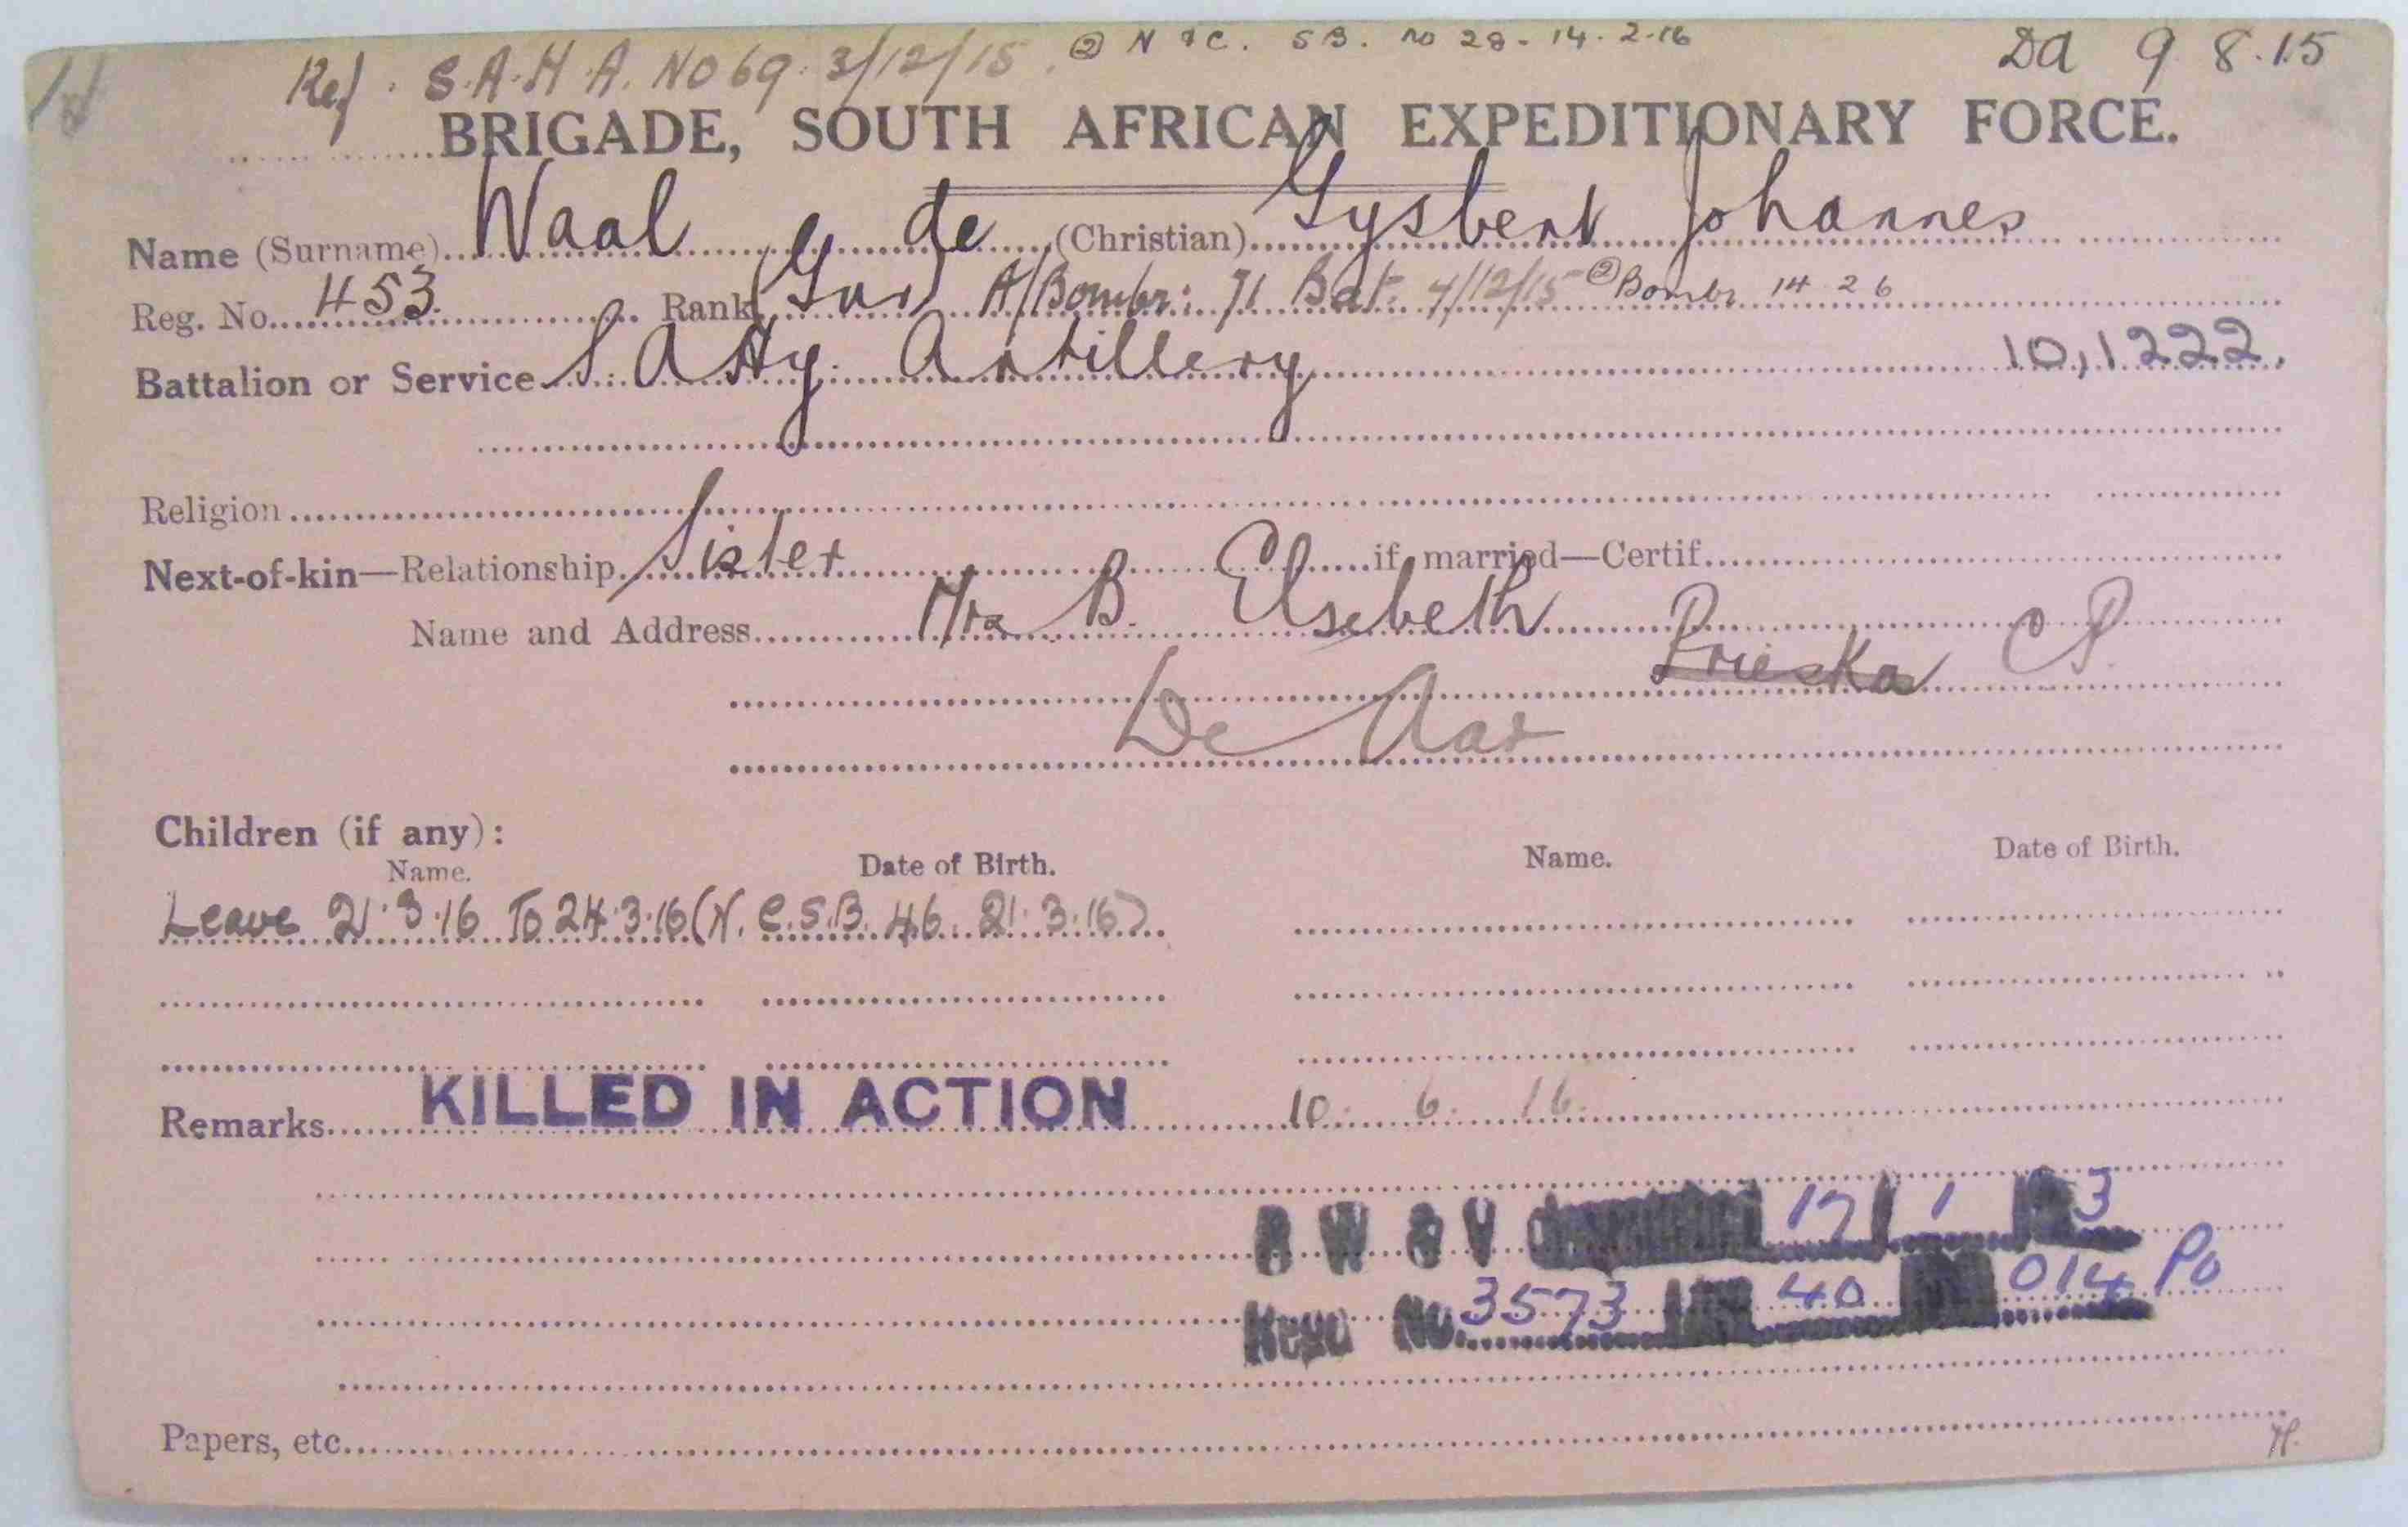 Ref. S.A.H.A. NO 69. 3/12/15. ② N & C. S B. no 28 - 14.2.16 DA 9 8.15
BRIGADE, SOUTH AFRICAN EXPEDITIONARY FORCE.
Name (Surname) Waal de (Christian) Gysbert Johannes
Reg. No. 453. Rank (Gnr) A/Bombr: 71 Bat. 4/12/15 ② Bombr 14 2 6
Battalion or Service S. A Hy. Artillery 10,1222.
Religion
Next-of-kin—Relationship Sister if married—Certif.
Name and Address Mrs B. Elsebeth Prieska C P.
De Aar
Children (if any):
Name. Date of Birth. Name. Date of Birth.
Leave 21.3.16 To 24.3.16 (N. C.S.B. 46. 21.3.16)
Remarks KILLED IN ACTION 10. 6. 16.
B W & V despatched 17 1 3
Regd No. 3573 40 014 Po
Papers, etc.